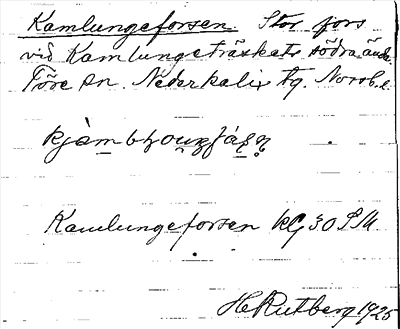 Kamlungeforsen. Stor fors
vid Kamlungeträskets södra ända
Töre sn. Nederkalix tg. Norrb. l.
Kamlungeforsen kg 30
H Rutberg 1925